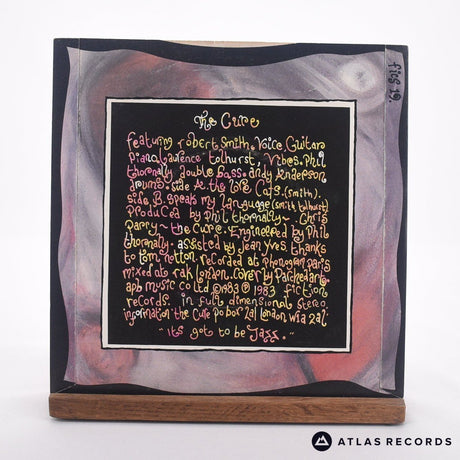 The Cure
featuring robert smith. Voice, Guitars
piano. Laurence tolhurst, vibes. Phil
thornally double bass. andy anderson
drums. side A. the love cats. (smith).
side B. speak my language (smith tolhurst)
Produced by phil thornally ~. Chris
parry ~ the Cure. Engineered by Phil
thornally. assisted by Jean yves. thanks
to tom hotton. recorded at phonogram paris
mixed at rak london. cover by Parchedart.
apb music co Ltd ©1983 ℗ 1983 fiction
records. in full dimensional stereo
information the Cure po box 2al london w1a 2al
"its got to be Jazz."
fics 19.
ATLAS RECORDS